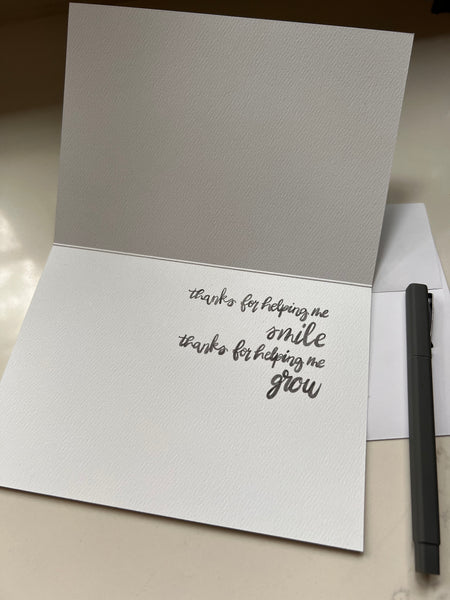 thanks for helping me
smile
thanks for helping me
grow